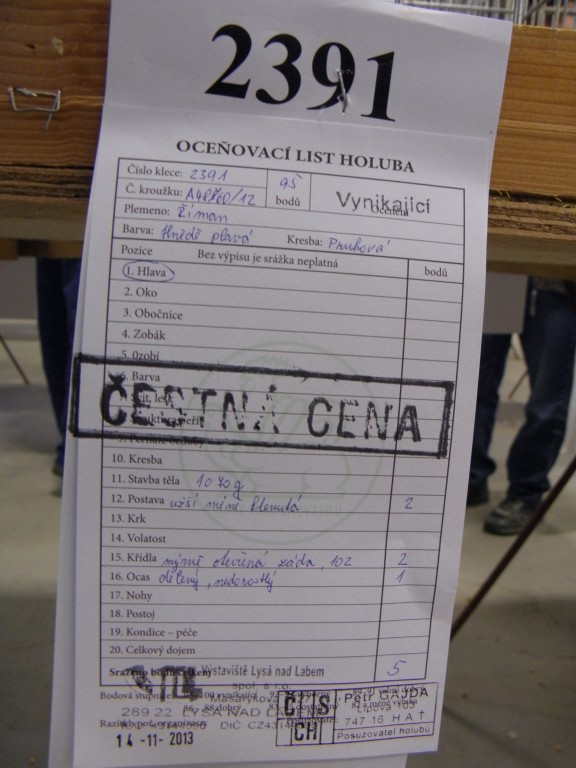 2391
OCEŇOVACÍ LIST HOLUBA
Číslo klece: 2391
95 bodů
Vynikající
Ocenění
Č. kroužku:
Plemeno: Říman
Barva: Hnědě plavá Kresba: Pruhová
Pozice Bez výpisu je srážka neplatná bodů
1. Hlava
2. Oko
3. Obočnice
4. Zobák
5. Ozobí
6. Barva
ČESTNÁ CENA
10. Kresba
11. Stavba těla 1070g
12. Postava užší méně klenutá 2
13. Krk
14. Volatost
15. Křídla mírně otevřená záda, 102 2
16. Ocas dělený, nedorostlý 1
17. Nohy
18. Postoj
19. Kondice – péče
20. Celkový dojem
Sraženo bodů celkem 5
Výstaviště Lysá nad Labem
spol. s r.o.
Masarykova
289 22 LYSÁ NAD LABEM
14 -11- 2013
ČS
CH
Petr GAJDA
Lipová 103
747 16 HAŤ
Posuzovatel holubů